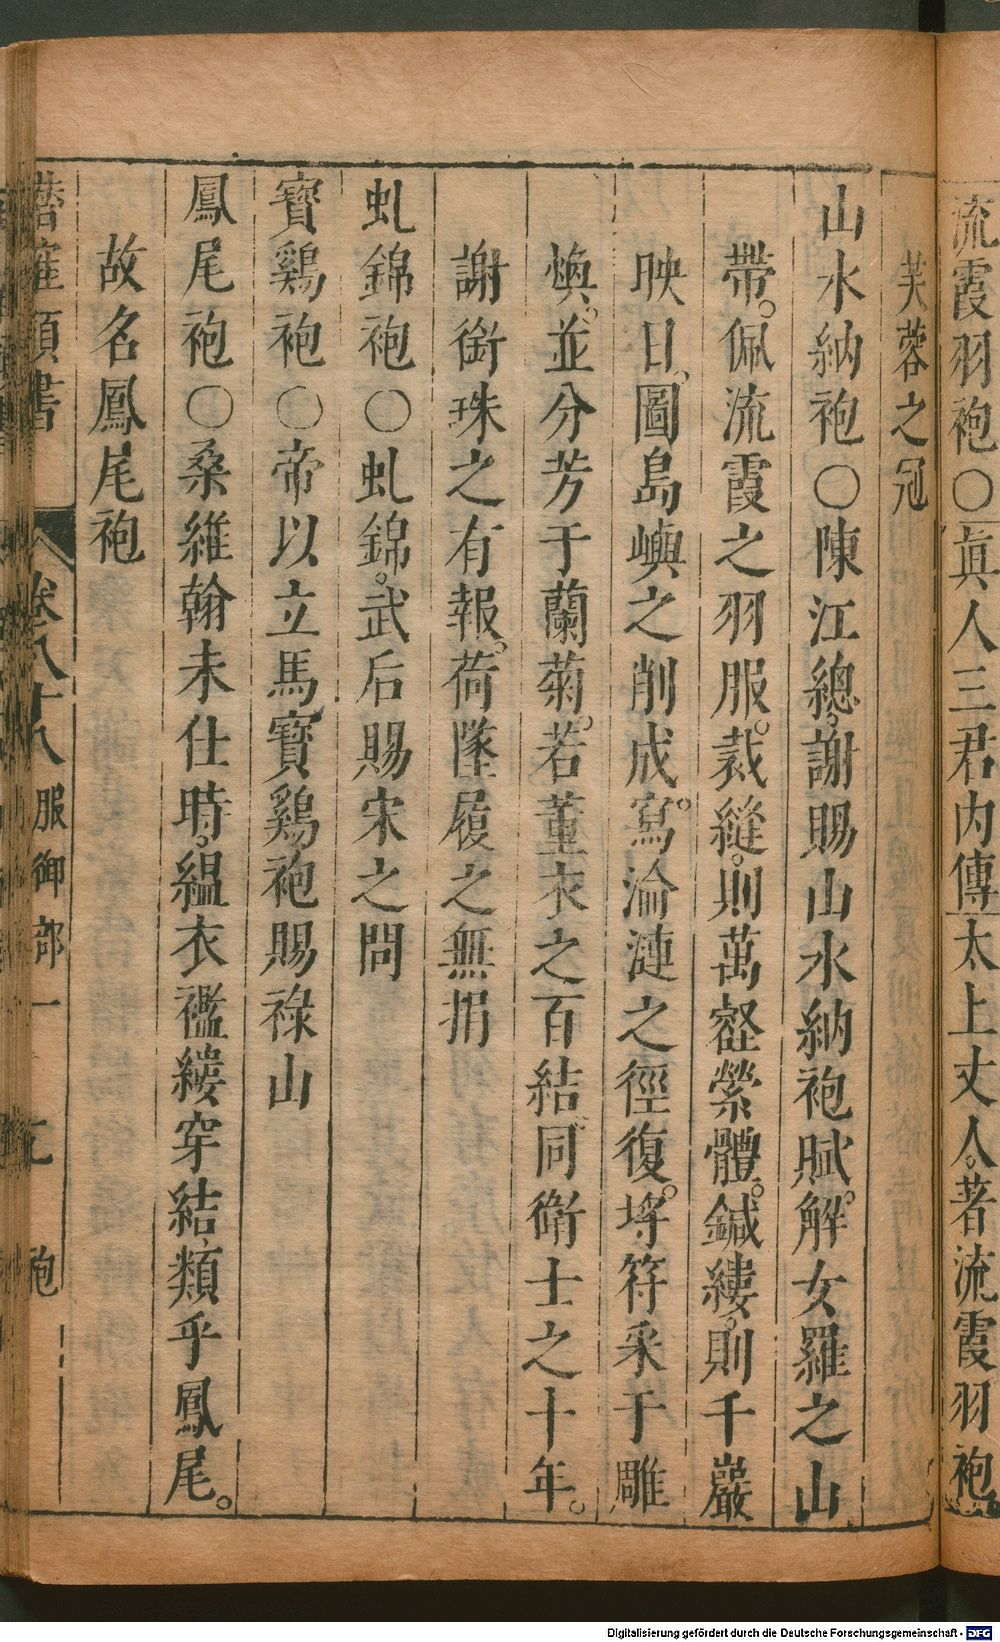 流霞羽袍〇眞人三君內傳太上丈人。著流霞羽袍
芙蓉之冠
山水納袍〇陳江總。謝賜山水納袍賦。解女羅之山
帶。佩流霞之羽服。裁縫。則萬壑縈體。鍼縷。則千巖
映日。圖島嶼之削成。寫淪漣之徑復。埒符采于雕
煥。並分芳于蘭菊。若董衣之百結。同衛士之十年。
謝銜珠之有報。荷墜履之無捐
虬錦袍〇虬錦。武后賜宋之問
寶鷄袍〇帝以立馬寶鷄袍賜祿山
鳳尾袍〇桑維翰未仕時。縕衣襤縷穿結類乎鳳尾。
故名鳳尾袍
類書 卷八十八 服御部一 袍
Digitalisierung gefördert durch die Deutsche Forschungsgemeinschaft - DFG